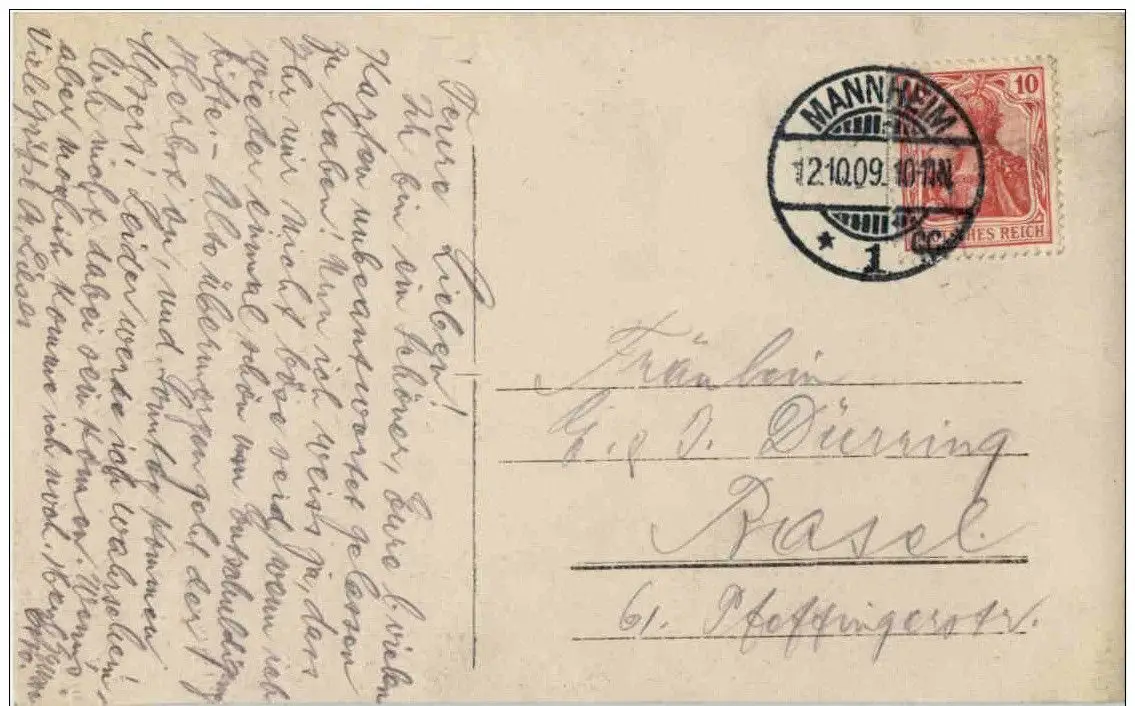 Teure Lieben!
Ich bin ein schöner, Eure l. vielen
Karten unbeantwortet gelassen
zu haben! Nun ich weiss ja, dass
Ihr mir nicht böse seid, wenn ich
wieder einmal schön um Entschuldigung
bitte. – Also übermorgen geht der
Herbst an, und Sonntag kommen
Leider werde ich wahrschein-
lich nicht dabei sein können. Wenn's
aber möglich komme ich noch. Herzl.
Viele Grüsse A. Lieses
MANNHEIM
12.10.09. 10-11N.
* 1 cc
10
DEUTSCHES REICH
Fräulein
E. & J. Dürring
Basel
61. Pfeffingerstr.